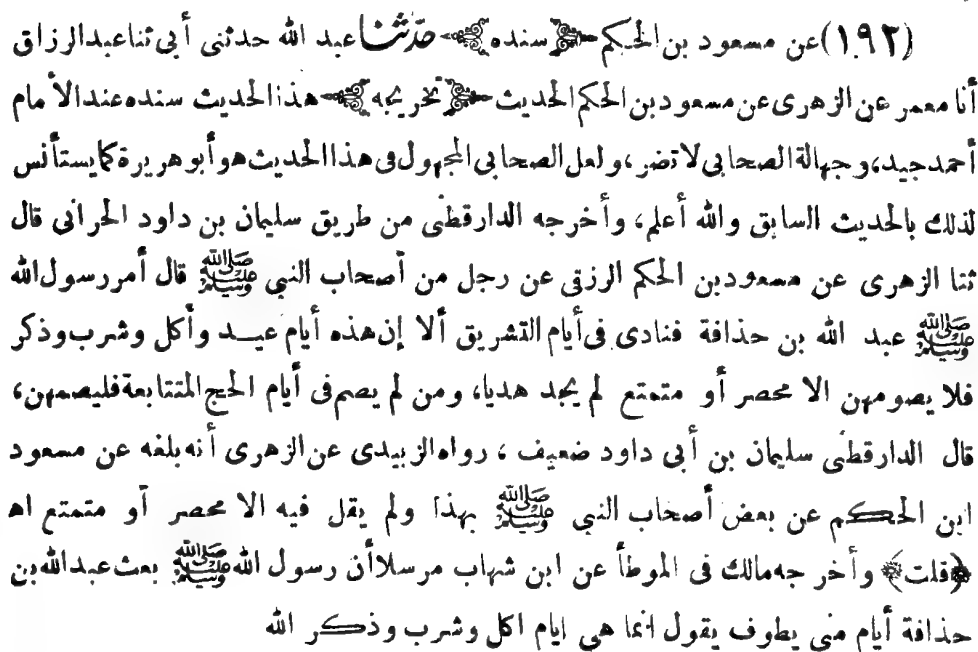 (١٩٢) عن مسعود بن الحكم ﴿سنده﴾ حدّثنا عبد الله حدثنى أبى ثنا عبد الرزاق
أنا معمر عن الزهرى عن مسعود بن الحكم الحديث ﴿تخريجه﴾ هذا الحديث سنده عند الأمام
أحمد جيد، وجهالة الصحابى لا تضر، ولعل الصحابى المجهول فى هذا الحديث هو أبو هريرة كما يستأنس
لذلك بالحديث السابق والله أعلم، وأخرجه الدارقطنى من طريق سليمان بن داود الحرانى قال
ثنا الزهرى عن مسعود بن الحكم الرزقى عن رجل من أصحاب النبى ﷺ قال أمر رسول الله
ﷺ عبد الله بن حذافة فنادى فى أيام التشريق ألا إن هذه أيام عيد وأكل وشرب وذكر
فلا يصومهن الا محصر أو متمتع لم يجد هديا، ومن لم يصم فى أيام الحج المتتابعة فليصمهن،
قال الدارقطنى سليمان بن أبى داود ضعيف ، رواه الزبيدى عن الزهرى أنه بلغه عن مسعود
ابن الحكم عن بعض أصحاب النبى ﷺ بهذا ولم يقل فيه الا محصر أو متمتع اه
﴿قلت﴾ وأخرجه مالك فى الموطأ عن ابن شهاب مرسلا أن رسول الله ﷺ بعث عبد الله بن
حذافة أيام منى يطوف يقول انما هى ايام اكل وشرب وذكر الله